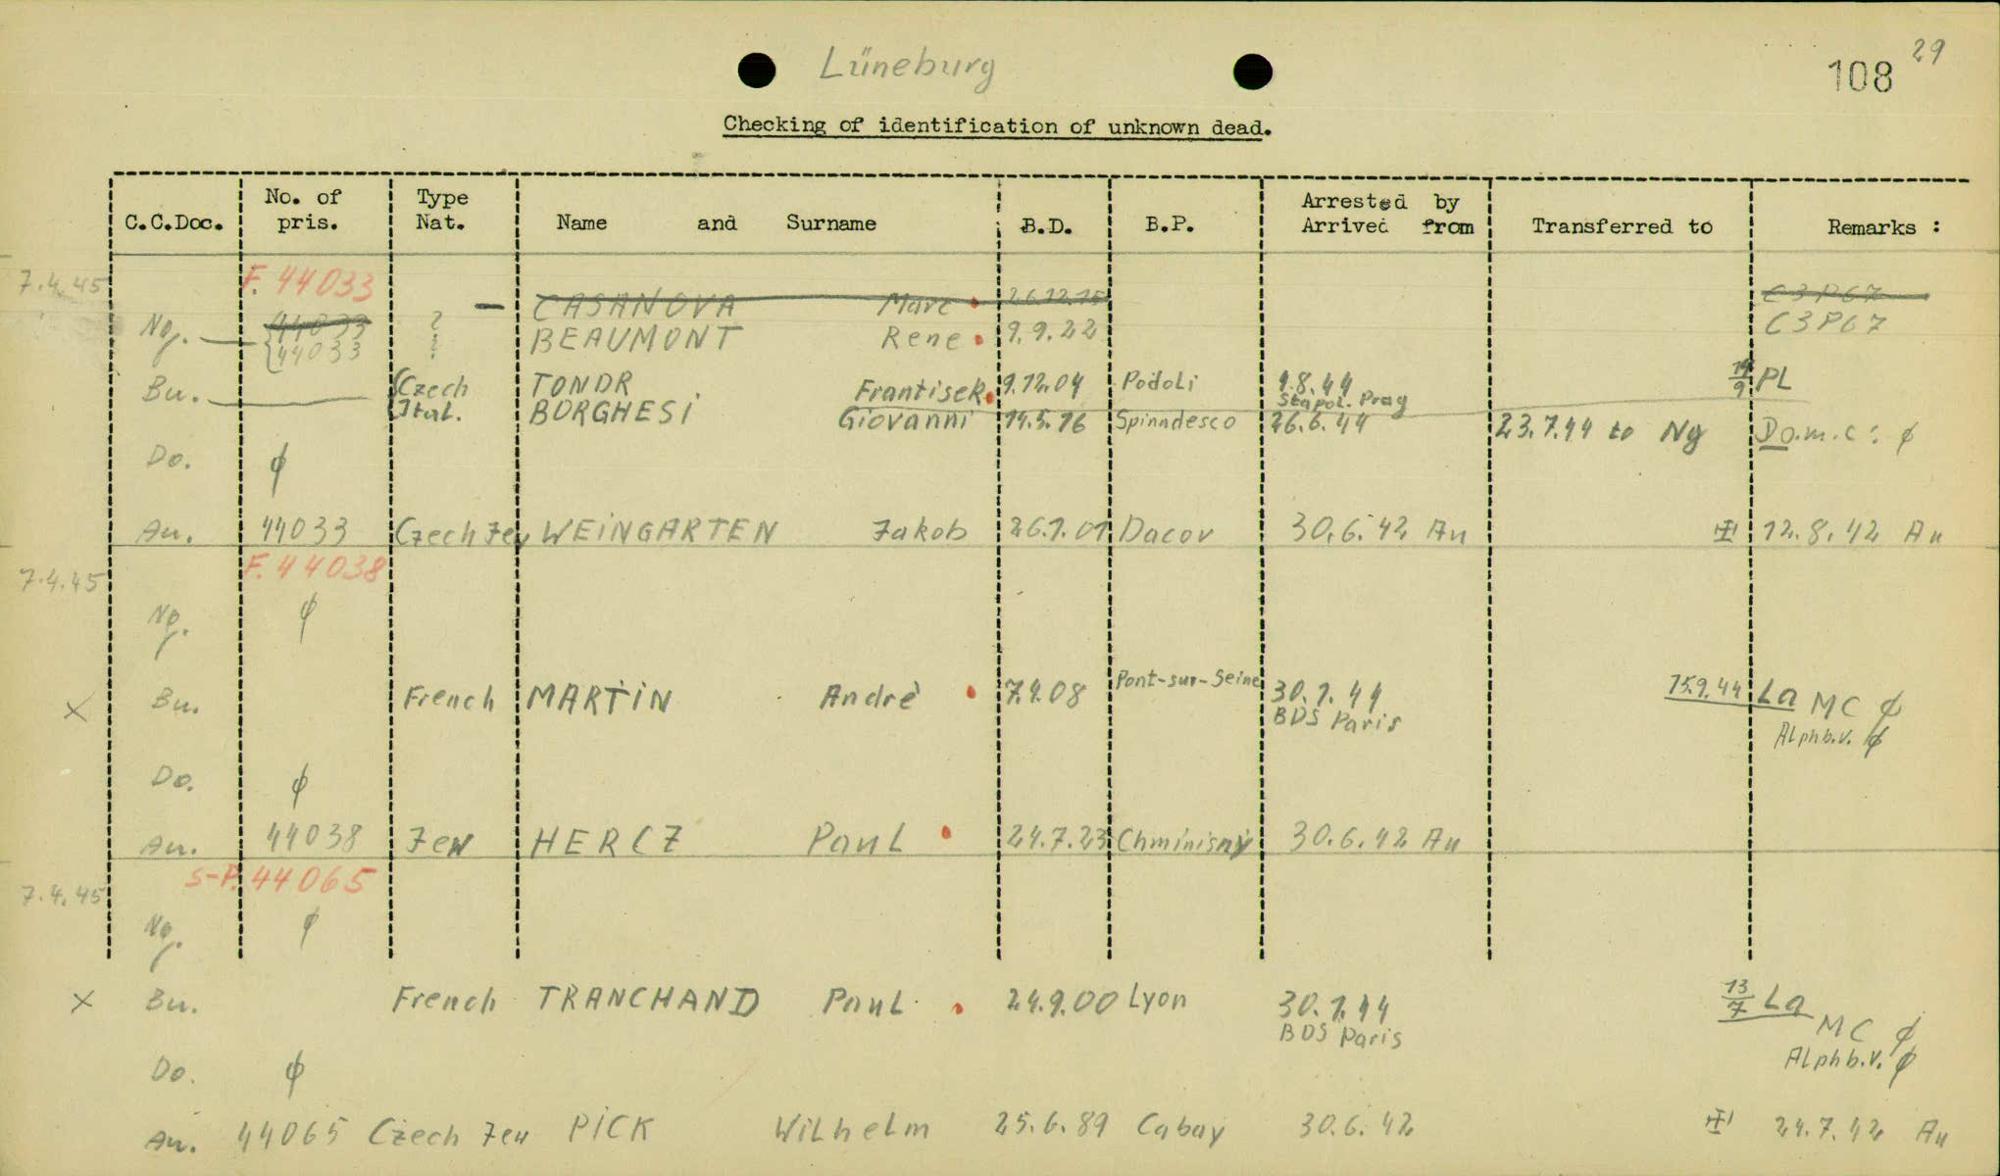 Lüneburg
108 29
Checking of identification of unknown dead.
C.C.Doc. No. of pris. Type Nat. Name and Surname B.D. B.P. Arrested by Arrived from Transferred to Remarks :
7.4.45 F. 44033
CASANOVA Marc 26.12.15 C3P67
Ng. 44033 ? BEAUMONT Rene 9.9.22 C3P67
44033
Bu. Czech TONDR Frantisek 9.12.04 Podoli 1.8.44 Stapol. Prag 14/9 PL
Ital. BORGHESi Giovanni 14.5.16 Spinndesco 26.6.44 23.7.44 to Ng Do.m.c: ϕ
Do. ϕ
Au. 44033 Czech Jew WEiNGARTEN Jakob 26.1.01 Dacov 30.6.42 Au 12.8.42 Au
7.4.45 F. 44038
Ng. ϕ
× Bu. French MARTiN Andrè 7.9.08 Pont-sur-Seine 30.1.44 BDS Paris 15.9.44 La MC ϕ
Alphb.v. ϕ
Do. ϕ
Au. 44038 Jew HERCZ Paul 24.7.23 Chminisny 30.6.42 Au
7.4.45 S-P. 44065
Ng. ϕ
× Bu. French TRANCHAND Paul 24.9.00 Lyon 30.1.44 BDS Paris 13/7 La
MC ϕ
Alphb.v. ϕ
Do. ϕ
Au. 44065 Czech Jew PiCK Wilhelm 25.6.89 Cabay 30.6.42 24.7.42 Au